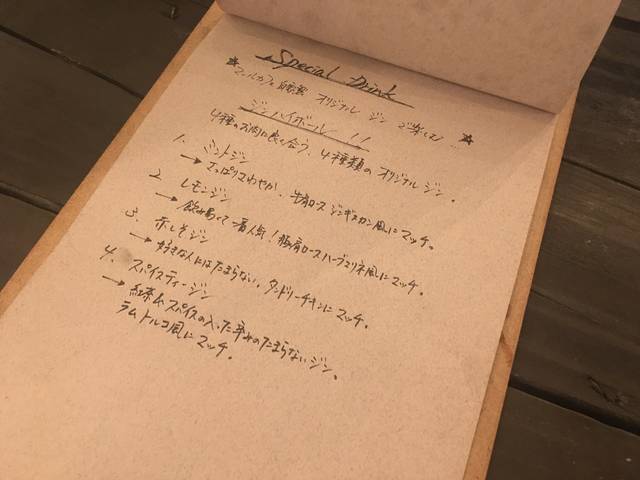 Special Drink
★ カフェ自家製 オリジナル ジン ★
ジンハイボール!!
4種のお肉に良く合う、4種類の オリジナル ジン。
1. ミントジン
→ さっぱりさわやか、牛肩ロース ジンギスカン風にマッチ。
2. レモンジン
→ 飲み易って一番人気!豚肩ロースハーブマリネ風にマッチ。
3. 赤しそジン
→ 好きな人にはたまらない、タンドリーチキンにマッチ。
4. スパイスティージン
→ 紅茶ムスパイスの入った辛みのたまらないジン。
ラムトルコ風にマッチ。